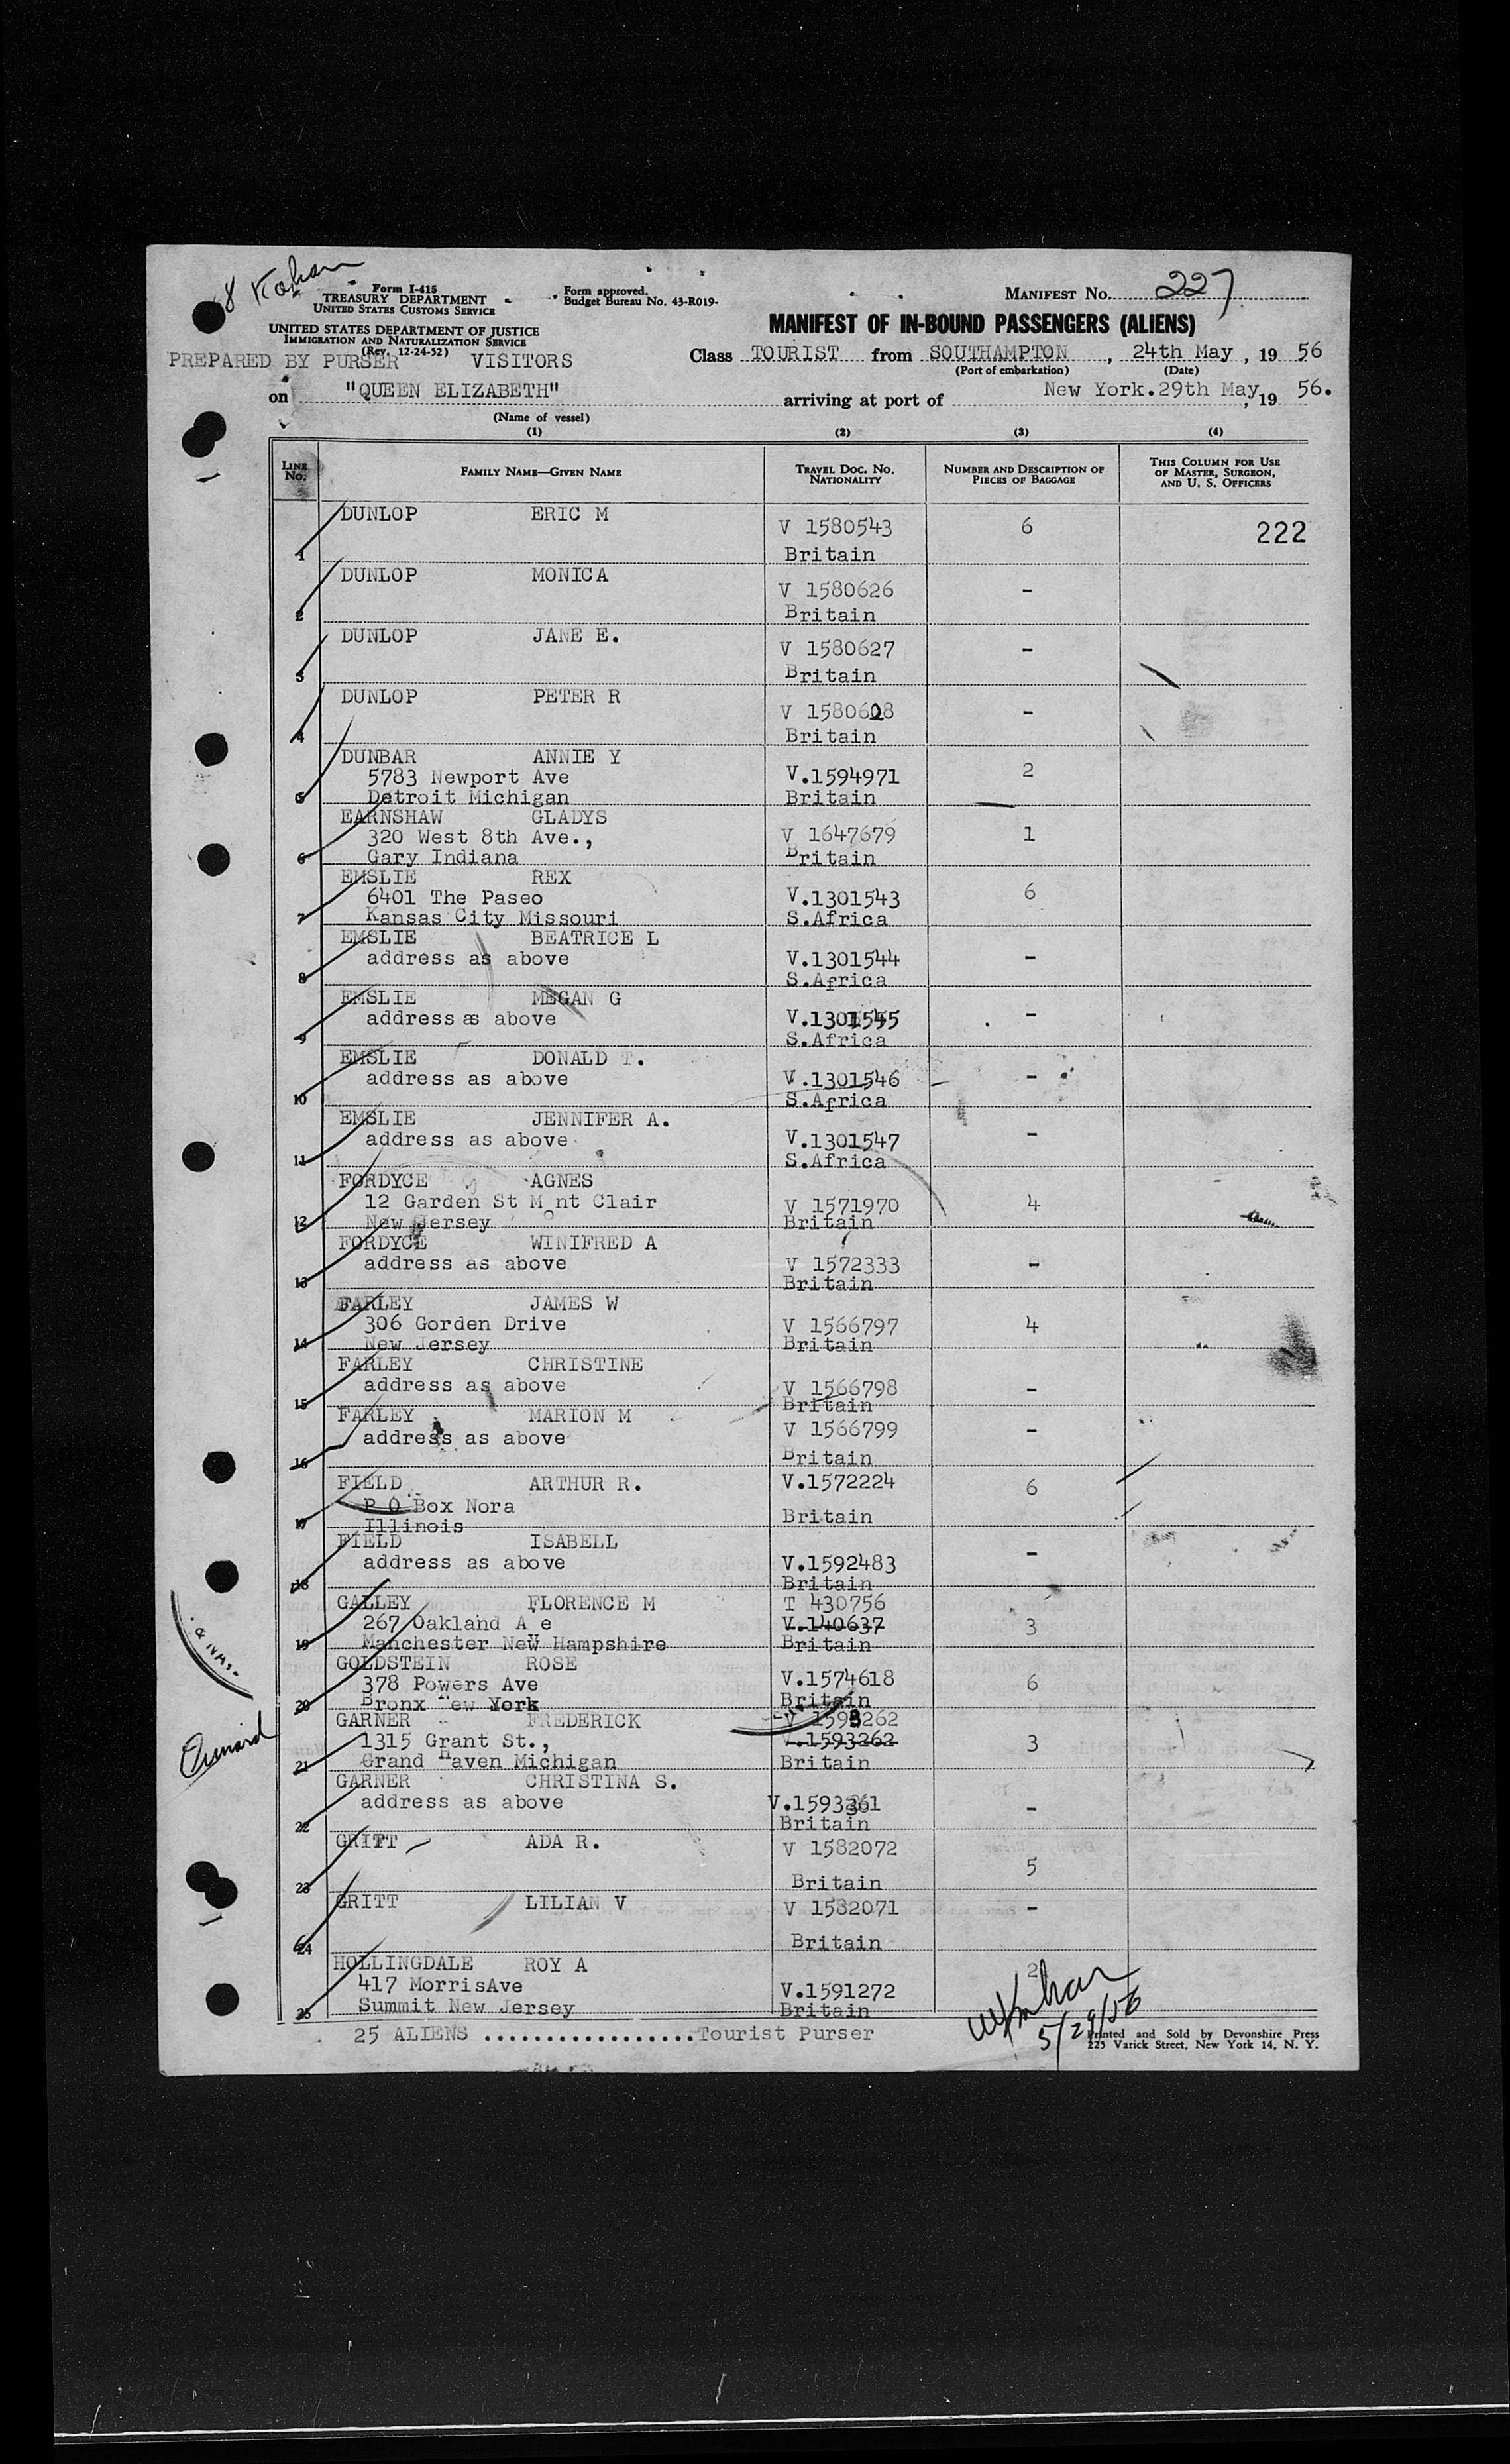 8 Kohan
Form I-415
TREASURY DEPARTMENT
UNITED STATES CUSTOMS SERVICE
Form approved.
Budget Bureau No. 43-R019-
MANIFEST NO. 227
UNITED STATES DEPARTMENT OF JUSTICE
IMMIGRATION AND NATURALIZATION SERVICE
(Rev. 12-24-52)
MANIFEST OF IN-BOUND PASSENGERS (ALIENS)
PREPARED BY PURSER VISITORS
Class TOURIST from SOUTHAMPTON, 24th May, 19 56
(Port of embarkation) (Date)
on "QUEEN ELIZABETH" arriving at port of New York. 29th May, 19 56.
(Name of vessel)
(1) (2) (3) (4)
LINE NO. FAMILY NAME—GIVEN NAME TRAVEL DOC. NO. NATIONALITY NUMBER AND DESCRIPTION OF PIECES OF BAGGAGE THIS COLUMN FOR USE OF MASTER, SURGEON, AND U. S. OFFICERS
DUNLOP ERIC M
V 1580543 6 222
1 Britain
DUNLOP MONICA
V 1580626 -
2 Britain
DUNLOP JANE E.
V 1580627 -
3 Britain
DUNLOP PETER R
V 1580628 -
4 Britain
DUNBAR ANNIE Y
5783 Newport Ave V.1594971 2
5 Detroit Michigan Britain
EARNSHAW GLADYS
320 West 8th Ave., V 1647679 1
6 Gary Indiana Britain
EMSLIE REX
6401 The Paseo V.1301543 6
7 Kansas City Missouri S.Africa
EMSLIE BEATRICE L
address as above V.1301544 -
8 S.Africa
EMSLIE MEGAN G
address as above V.1301545 -
9 S.Africa
EMSLIE DONALD T.
address as above V.1301546 -
10 S.Africa
EMSLIE JENNIFER A.
address as above V.1301547 -
11 S.Africa
FORDYCE AGNES
12 Garden St Mont Clair V 1571970 4
12 New Jersey Britain
FORDYCE WINIFRED A
address as above V 1572333 -
13 Britain
FARLEY JAMES W
306 Gorden Drive V 1566797 4
14 New Jersey Britain
FARLEY CHRISTINE
address as above V 1566798 -
15 Britain
FARLEY MARION M
address as above V 1566799 -
16 Britain
FIELD ARTHUR R. V.1572224 6
P O Box Nora
17 Illinois Britain
FIELD ISABELL
address as above V.1592483 -
18 Britain
GALLEY FLORENCE M T 430756
267 Oakland A e V.140637 3
19 Manchester NeW Hampshire Britain
GOLDSTEIN ROSE
378 Powers Ave V.1574618 6
20 Bronx New York Britain
GARNER FREDERICK V 1593262
1315 Grant St., V.1593262 3
21 Grand Haven Michigan Britain
GARNER CHRISTINA S.
address as above V.1593261 -
22 Britain
Cunard
GRITT ADA R. V 1582072
5
23 Britain
GRITT LILIAN V V 1582071 -
24 Britain
HOLLINGDALE ROY A 2
417 MorrisAve V.1591272
25 Summit New Jersey Britain
25 ALIENS ................. Tourist Purser
5/29/56
Printed and Sold by Devonshire Press
225 Varick Street, New York 14, N. Y.